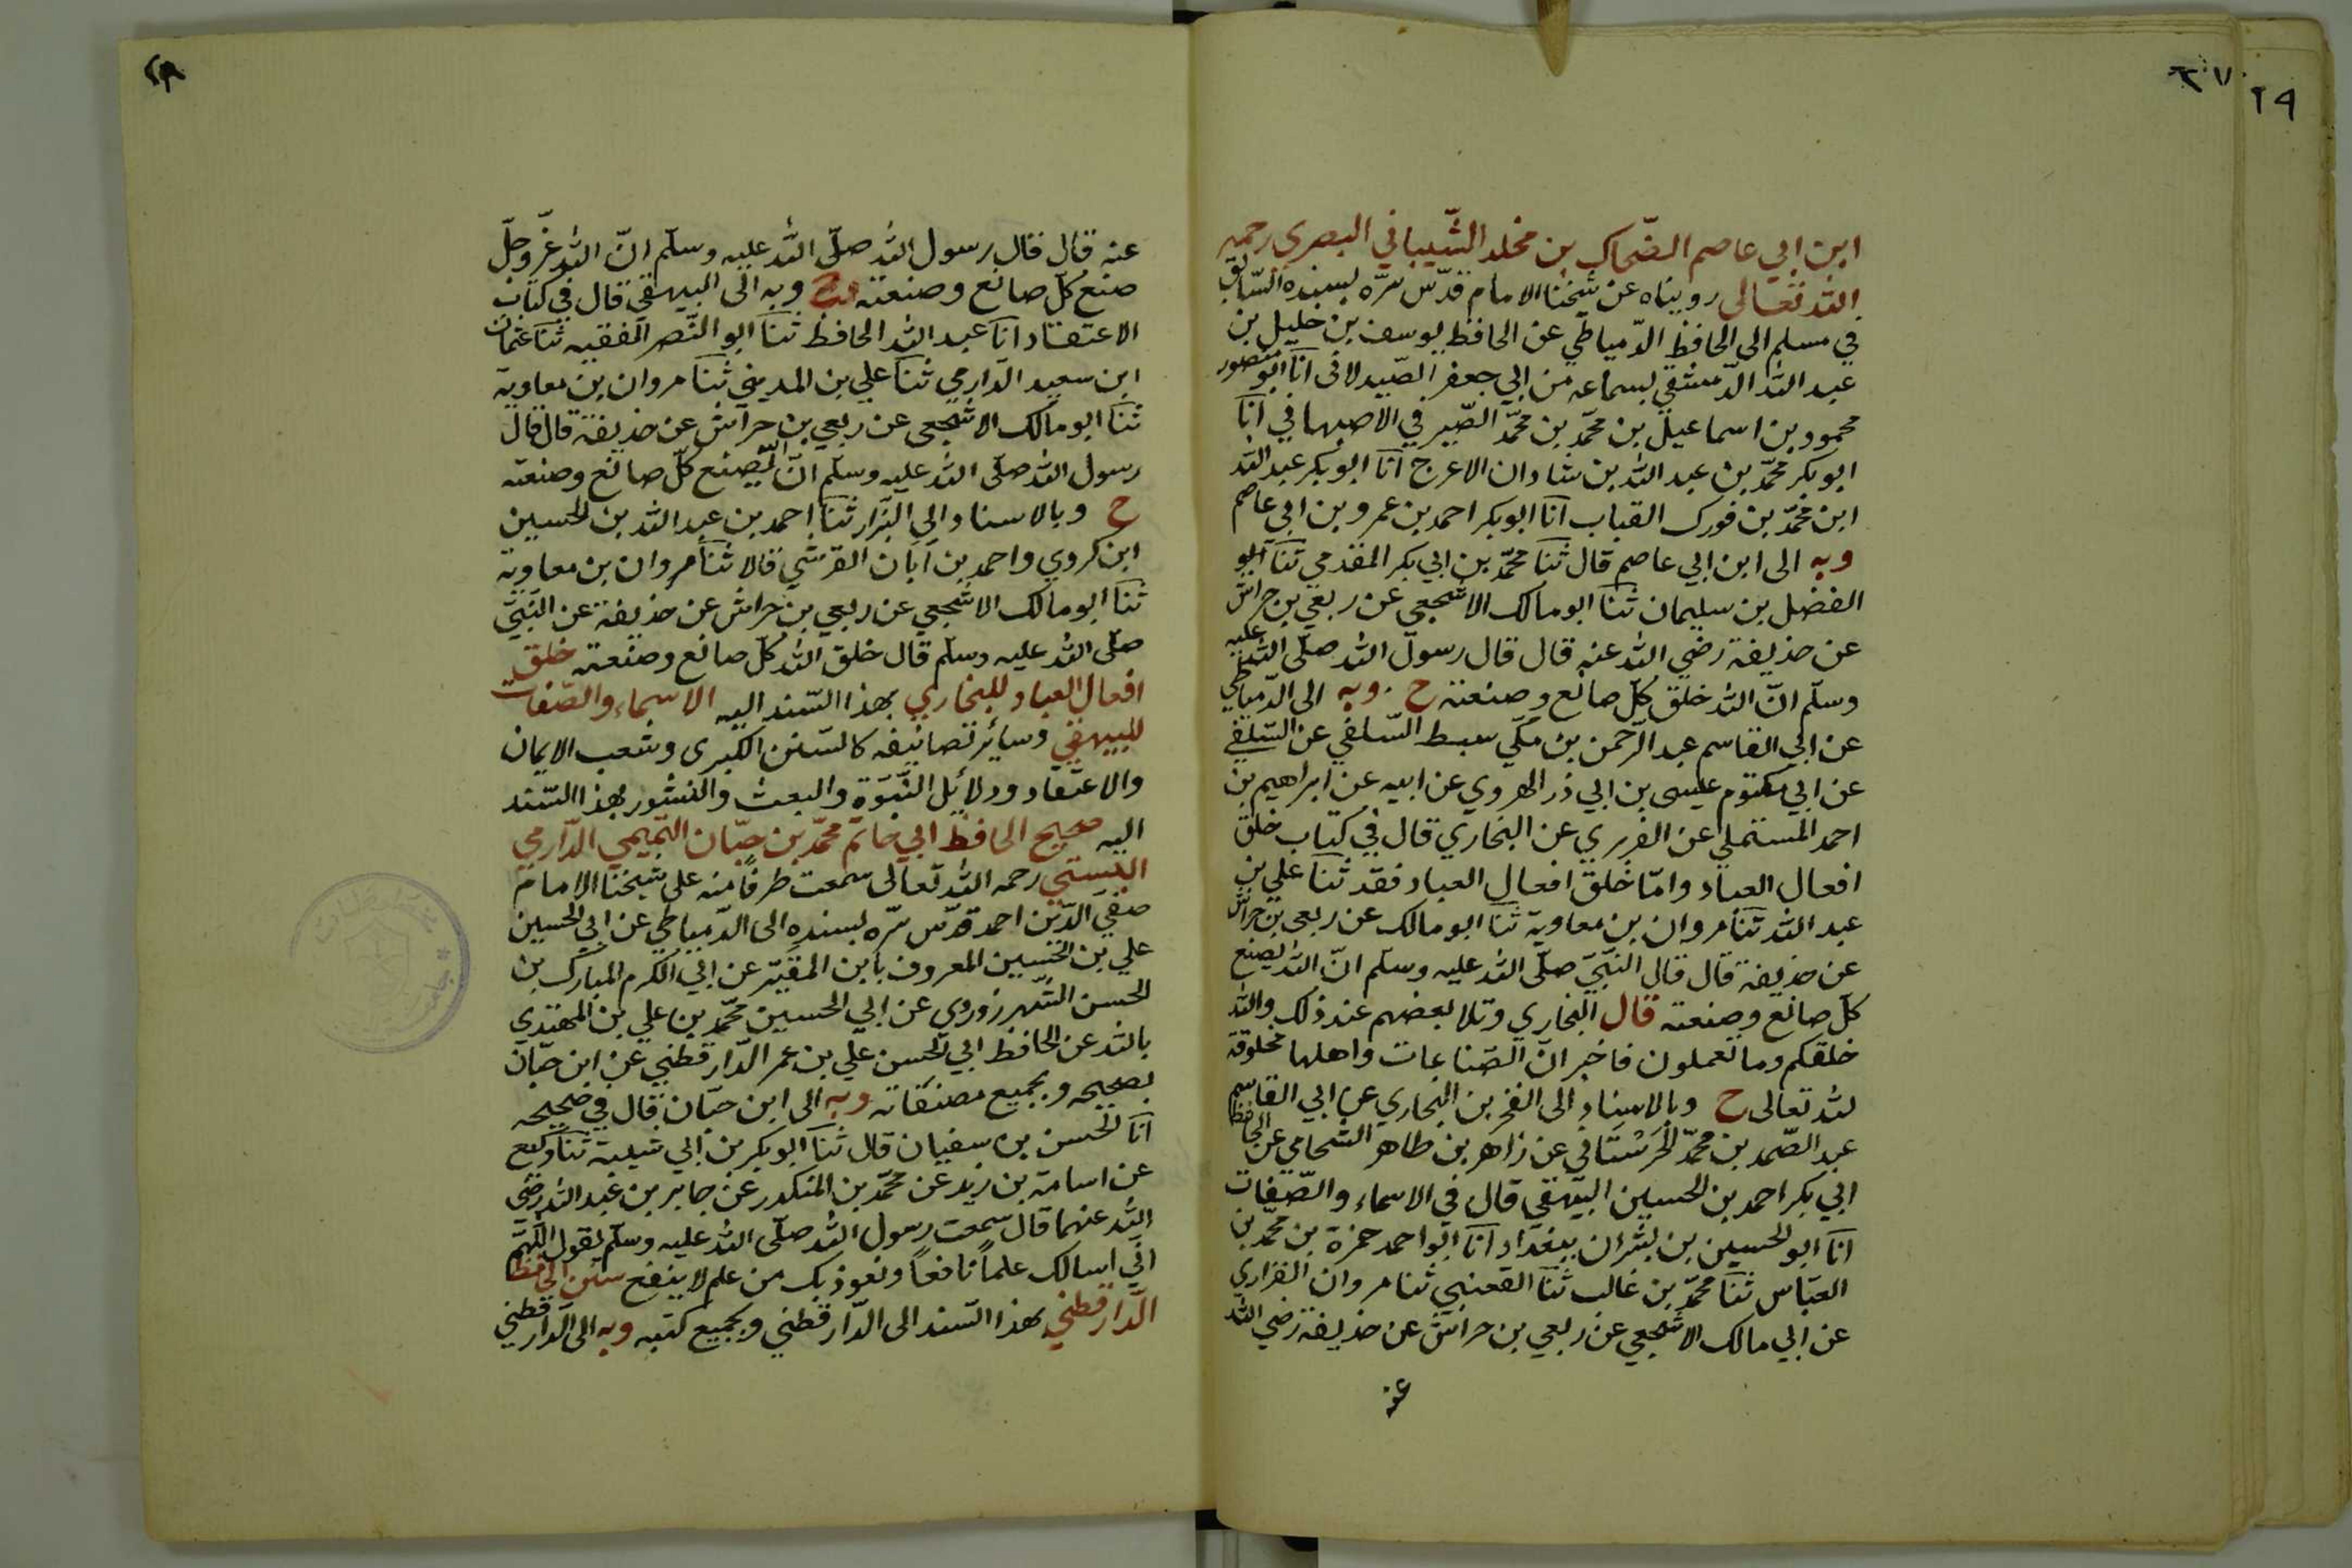 ٢٧
٢٩
ابن ابي عاصم الضّحاك بن مخلد الشّيباني البصري رحمه
الله تعالى رويناه عن شيخنا الامام قدّس سرّه بسنده السّابق
في مسلم الى الحافظ الدّمياطي عن الحافظ يوسف بن خليل بن
عبد الله الدّمشقي بسماعه من ابي جعفر الصّيدلاني انا ابو منصور
محمود بن اسماعيل بن محمّد بن محمّد الصّيرفي الاصبهاني انا
ابو بكر محمّد بن عبد الله بن شاذان الاعرج انا ابو بكر عبد الله
ابن محمّد بن فورك القباب انا ابو بكر احمد بن عمرو بن ابي عاصم
وبه الى ابن ابي عاصم قال ثنا محمّد بن ابي بكر المقدمي ثنا ابو
الفضل بن سليمان ثنا ابو مالك الاشجعي عن ربعي بن حراش
عن حذيفة رضي الله عنه قال قال رسول الله صلّى الله عليه
وسلّم انّ الله خلق كلّ صانع وصنعته ح وبه الى الدّمياطي
عن ابي القاسم عبد الرّحمن بن مكّي سبط السّلفي عن السّلفي
عن ابي مكتوم عيسى بن ابي ذر الهروي عن ابيه عن ابراهيم بن
احمد المستملي عن الفربري عن البخاري قال في كتاب خلق
افعال العباد وامّا خلق افعال العباد فقد ثنا علي بن
عبد الله ثنا مروان بن معاوية ثنا ابو مالك عن ربعي بن حراش
عن حذيفة قال قال النّبيّ صلّى الله عليه وسلّم انّ الله يصنع
كلّ صانع وصنعته قال البخاري وتلا بعضهم عند ذلك والله
خلقكم وما تعملون فاخبر انّ الصّناعات واهلها مخلوقة
لله تعالى ح وبالاسناد الى الفخر بن البخاري عن ابي القاسم
عبد الصّمد بن محمّد الحَرَسْتَاني عن زاهر بن طاهر الشّحامي عن الحافظ
ابي بكر احمد بن الحسين البيهقي قال في الاسماء والصّفات
انا ابو الحسين بن بشران ببغداد انا ابو احمد حمزة بن محمّد بن
العبّاس ثنا محمّد بن غالب ثنا القعنبي ثنا مروان الفزاري
عن ابي مالك الاشجعي عن ربعي بن حراش عن حذيفة رضي الله
عنه
٢٨
عنه قال قال رسول الله صلّى الله عليه وسلّم انّ الله عزّ وجلّ
صنع كلّ صانع وصنعته ح وبه الى البيهقي قال في كتاب
الاعتقاد انا عبد الله الحافظ ثنا ابو النّصر الفقيه ثنا عثمان
ابن سعيد الدّارمي ثنا علي بن المديني ثنا مروان بن معاوية
ثنا ابو مالك الاشجعي عن ربعي بن حراش عن حذيفة قال قال
رسول الله صلّى الله عليه وسلّم انّ الله يصنع كلّ صانع وصنعته
ح وبالاسناد الى البزّار ثنا احمد بن عبد الله بن الحسين
ابن كروي واحمد بن ابان القرشي قالا ثنا مروان بن معاوية
ثنا ابو مالك الاشجعي عن ربعي بن حراش عن حذيفة عن النّبيّ
صلّى الله عليه وسلّم قال خلق الله كلّ صانع وصنعته خلق
افعال العباد للبخاري بهذا السّند اليه الاسماء والصّفات
للبيهقي وسائر تصانيفه كالسّنن الكبرى وشعب الايمان
والاعتقاد ودلائل النّبوّة والبعث والنشور بهذا السّند
اليه صحيح الحافظ ابي حاتم محمّد بن حبّان التّميمي الدّارمي
البستي رحمه الله تعالى سمعت طرفًا منه على شيخنا الامام
صفيّ الدّين احمد قدّس سرّه بسنده الى الدّمياطي عن ابي الحسين
علي بن الحسين المعروف بابن المقيّر عن ابي الكرم المبارك بن
الحسن الشّهرزوري عن ابي الحسين محمّد بن علي بن المهتدي
بالله عن الحافظ ابي الحسن علي بن عمر الدّارقطني عن ابن حبّان
بصحيحه وبجميع مصنّفاته وبه الى ابن حبّان قال في صحيحه
انا الحسن بن سفيان قال ثنا ابو بكر بن ابي شيبة ثنا وكيع
عن اسامة بن زيد عن محمّد بن المنكدر عن جابر بن عبد الله رضي
الله عنهما قال سمعت رسول الله صلّى الله عليه وسلّم يقول اللّهمّ
انّي اسالك علمًا نافعًا ونعوذ بك من علم لا ينفع سنن الحافظ
الدّارقطني بهذا السّند الى الدّارقطني وبجميع كتبه وبه الى الدّارقطني